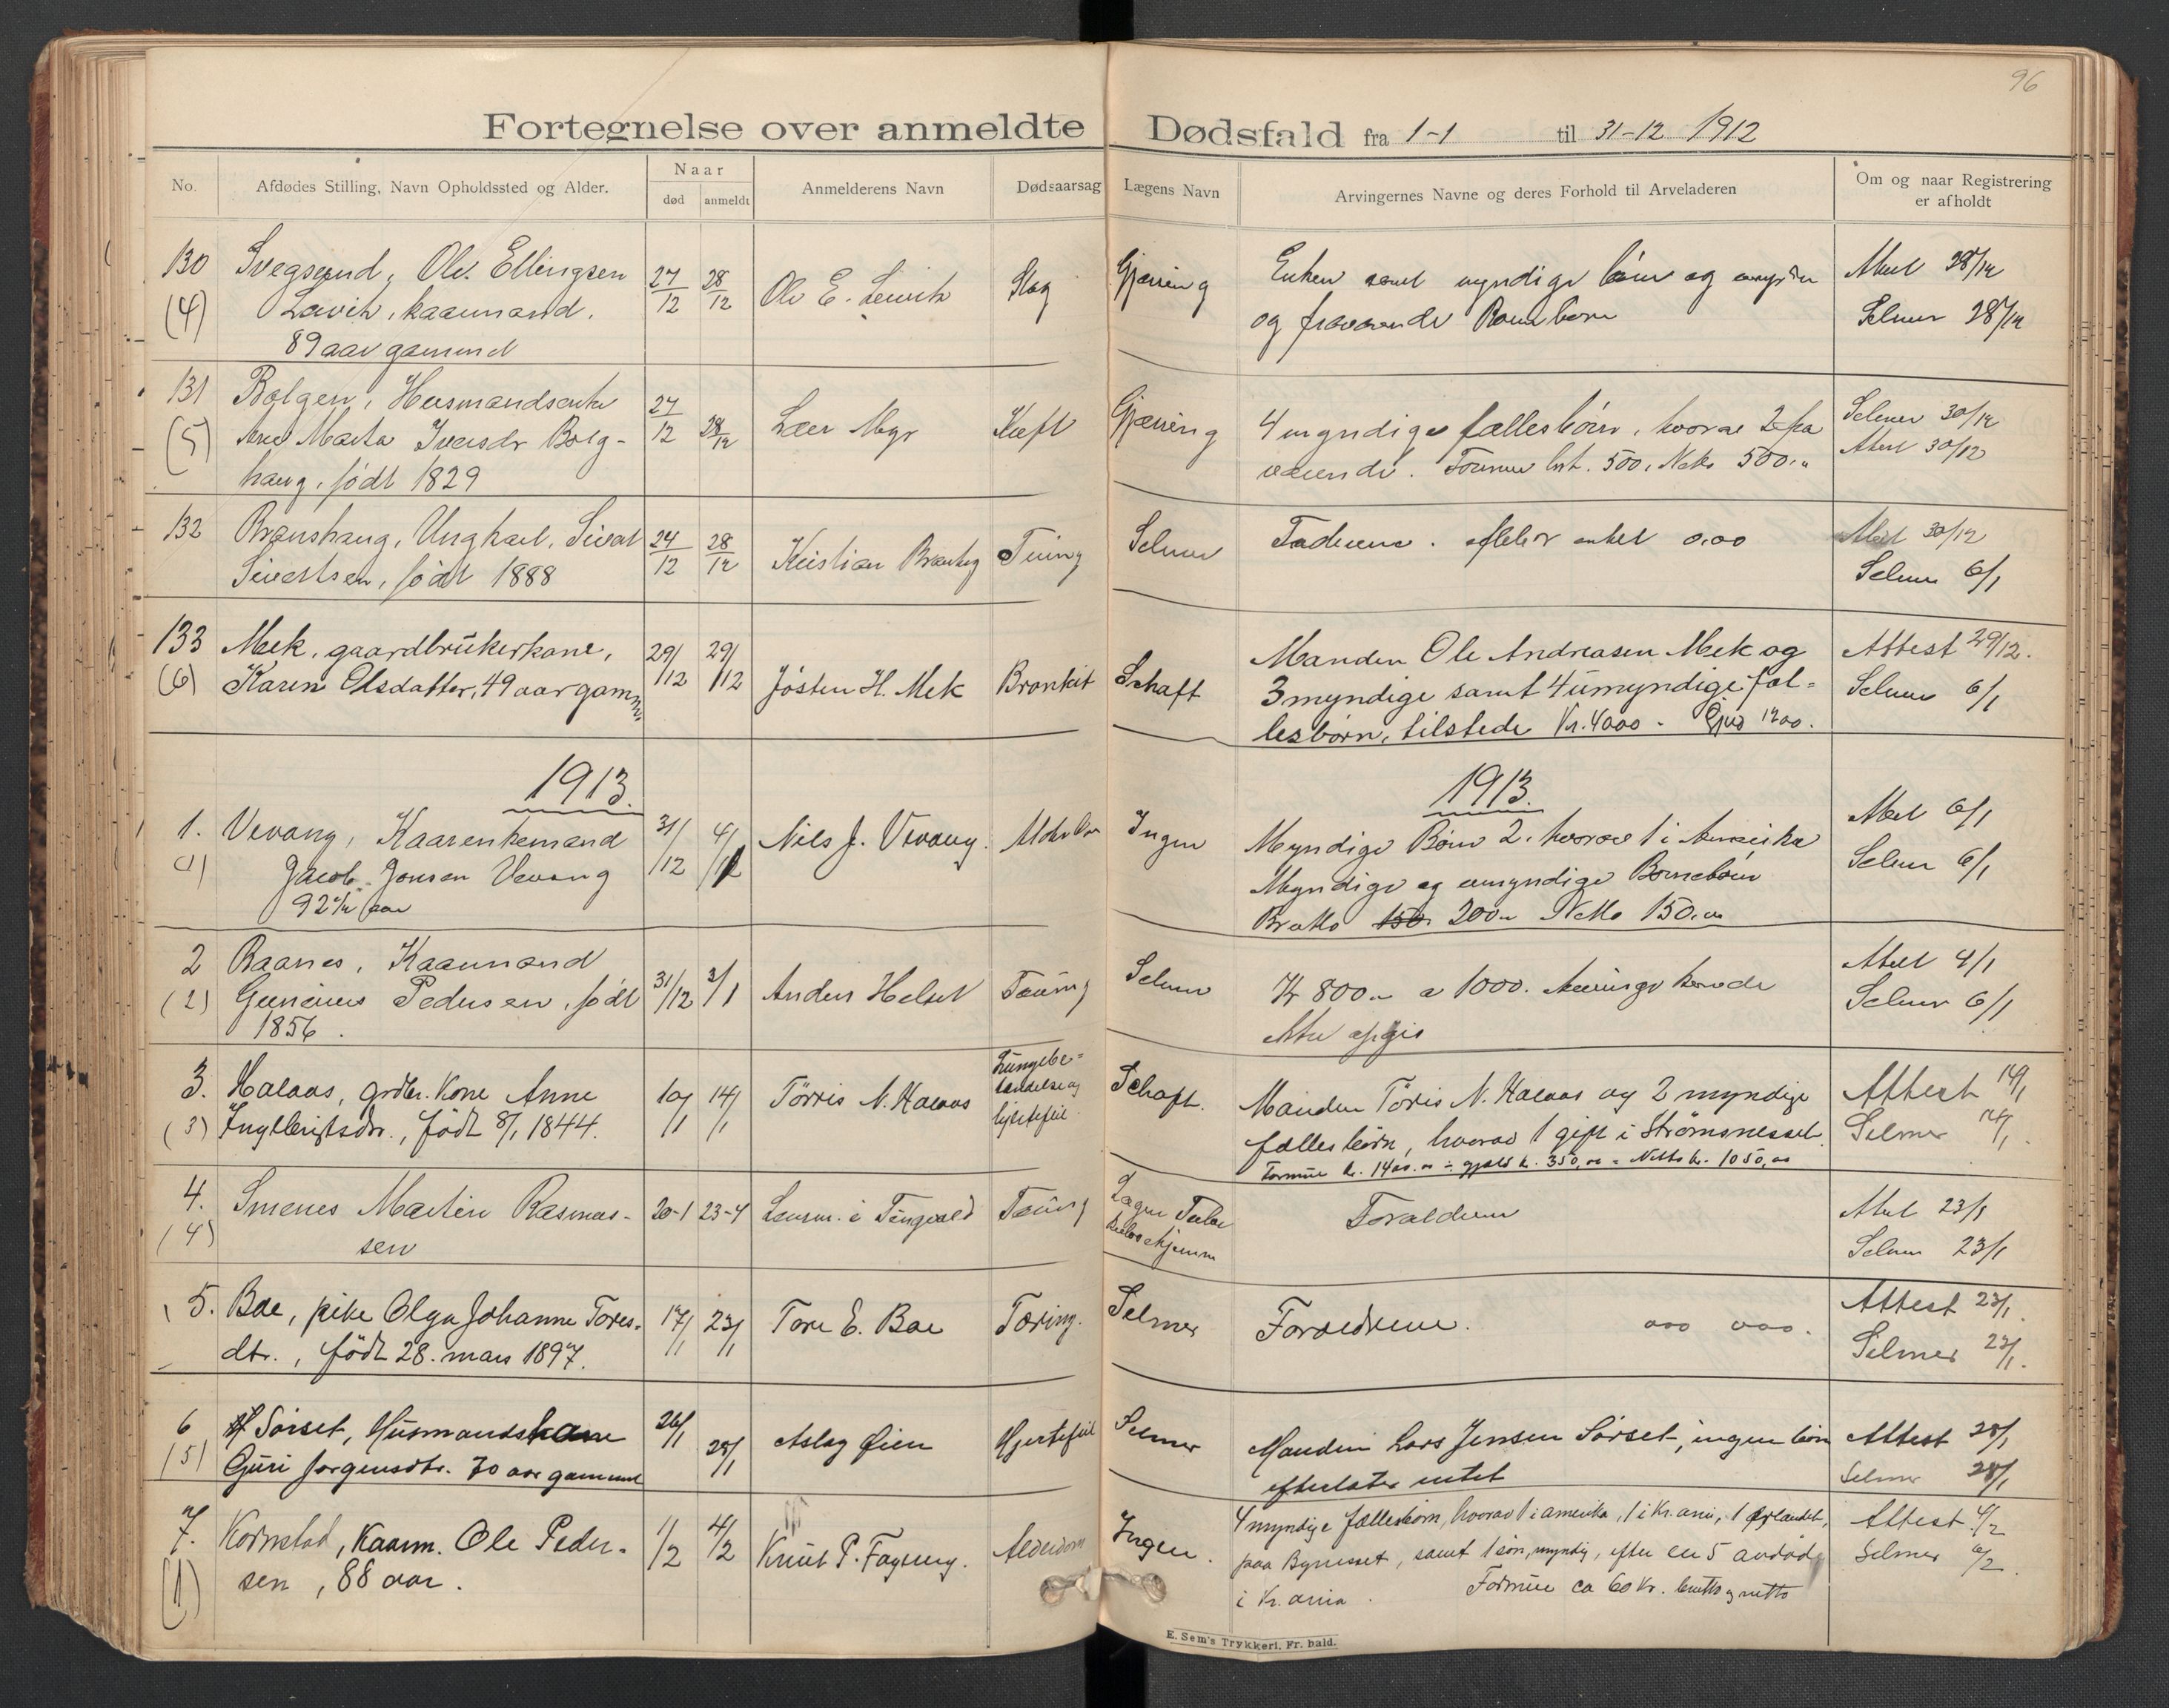 96
Fortegnelse over anmeldte Dødsfald fra 1-1 til 31-12 1912
No. Afdødes Stilling, Navn Opholdssted og Alder. Naar død anmeldt Anmelderens Navn Dødsaarsag Lægens Navn Arvingernes Navne og deres Forhold til Arveladeren Om og naar Registrering er afholdt
130 Svegsund, Ole Ellingsen 27/12 28/12 Ole E. Slag Gjæring Enken samt myndige børn og
(4) kaarmand. og fraværende Barnebørn Selmer 28/12
89 aar gammel
131 Bolgen, Husmandsenke 27/12 28/12 Lars Myr Kræft Gjæring 4 myndige fællesbørn, hvorav 2 fra Selmer 30/12
(5) Ane Marta Iversdr Bolg- værende. Formue brt. 500, Netto 500,- Attest 30/12
haug, født 1829
132 Brænshaug, Ungkarl, Sivert 24/12 28/12 Kristian Tæring Selmer Forældrene. 0,00 Attest 30/12
Sivertsen, født 1888 Selmer 6/1
133 Mek, gaardbrukerkone, 29/12 29/12 Jøsten H. Mek Bronkit Schaft Manden Ole Andreasen Mek og Attest 29/12.
(6) Karen Olsdatter, 49 aar gamm. 3 myndige samt 4 umyndige fæl- Selmer 6/1
lesbørn, tilstede Kr. 4000 - Gjæld 1200.
1913. 1913.
1. Vevang, Kaarenkemand 31/12 4/1 Nils J. Vevang. Ingen Myndige Børn 2, hvorav 1 i Amerika Attest 6/1
(1) Jacob Jonsen Vevang Myndige og umyndige Barnebørn Selmer 6/1
92 1/2 aar Brutto 150 200,- Netto 150,00
2 Baanes, Kaarmand 31/12 3/1 Anders Helset Tæring Selmer Kr 800,- a 1000. Attest 4/1
(2) Pedersen, født Selmer 6/1
1856.
3. Halaas, grdbr. Kone Anne 10/1 14/1 Törris N. Halaas Lungebe-tændelse og hjertefeil. Schaft. Manden Töris N. Halaas og 2 myndige Attest 14/1
(3) Ingebrigtsdr., født 8/1 1844. fællesbørn, hvorav 1 gift i Strømsnesset. Selmer 14/1.
Formue kr. 1400.00 ÷ gjæld k. 350,00 = Netto kr. 1050,00
4. Smenes Martin Rasmus- 20-1 23-4 Lensm. i Tingvold Tæring Forældrene Attest 23/1
(4) sen Selmer 23/1
5. Boe, pike Olga Johanne Tores- 17/1 23/1 Tore E. Boe Tæring. Selmer Forældrene. 000 000. Attest 23/1.
dtr., født 28. mars 1897. Selmer 23/1.
6 Sørset, Husmandskone 26/1 28/1 Aslag Øien Hjertefeil Selmer Manden Lars Jensen Sørset, ingen børn Attest 28/1
(5) Guri Jørgensdtr. 70 aar gammel efterlater intet Selmer 28/1
7. Kornstad, Kaarm. Ole Peder- 1/2 4/2 Knut P. Alderdom Ingen. 4 myndige fællesbørn, hvorav 1 i amerika, 1 i Kr.ania, 1 Ørlandet, Attest 4/2
(1) sen, 88 aar. paa Bynesset, samt 1 søn, myndig, efter en 5 avdød Selmer 6/2.
i Kr.ania. Formue ca 60 kr. brutto og netto
E. Sem's Trykkeri, Fr. hald.